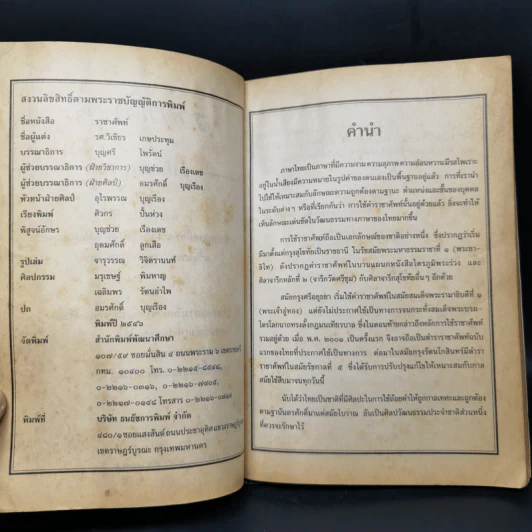 สงวนลิขสิทธิ์ตามพระราชบัญญัติการพิมพ์
ชื่อหนังสือ ราชาศัพท์
ชื่อผู้แต่ง รศ.วิเชียร เกษประทุม
บรรณาธิการ บุญศรี ไพรัตน์
ผู้ช่วยบรรณาธิการ (ฝ่ายวิชาการ) บุญช่วย เรืองเดช
ผู้ช่วยบรรณาธิการ (ฝ่ายศิลป์) อมรศักดิ์ บุญเรือง
หัวหน้าฝ่ายศิลป์ อุไรพรรณ บุญเรือง
เรียงพิมพ์ ศิวกร ปิ่นห่วง
พิสูจน์อักษร บุญช่วย เรืองเดช
อุดมศักดิ์ ลูกเสือ
รูปเล่ม จารุวรรณ วิจิตรานนท์
ศิลปกรรม มรุเชษฐ์ พิมหาญ
เฉลิมพร รัตนอำไพ
ปก อมรศักดิ์ บุญเรือง
พิมพ์ปี ๒๕๔๖
จัดพิมพ์ สำนักพิมพ์พัฒนาศึกษา
๑๐๗/๕๙ ซอยมั่นสิน ๔ ถนนพระราม ๖ เขตราชเทวี
กทม. ๑๐๔๐๐ โทร. ๐-๒๒๑๕-๘๙๔๔,
๐-๒๒๑๖-๐๓๑๖, ๐-๒๒๑๖-๙๙๐๕,
๐-๒๒๑๗-๐๑๔๘ โทรสาร
พิมพ์ที่ บริษัท ธนธัชการพิมพ์ จำกัด
๔๘๐/๑ ซอยแสงสันต์ ถนนประชาอุทิศ แขวงราษฎร์บูรณะ
เขตราษฎร์บูรณะ กรุงเทพมหานคร
คำนำ
ภาษาไทยเป็นภาษาที่มีความงาม ความสุภาพ ความอ่อนหวาน มีรสไพเราะ
อยู่ในน้ำเสียงมีความหมายในรูปคำของตนเองเป็นพื้นฐานอยู่แล้ว การที่เรานำ
ไปใช้ให้เหมาะสมกับลักษณะความถูกต้องตามฐานะ ตำแหน่งและชั้นของบุคคล
ในระดับต่างๆ หรือที่เรียกกันว่า การใช้คำราชาศัพท์นั้นอยู่ด้วยแล้ว ยิ่งจะทำให้
เห็นลักษณะเด่นชัดในวัฒนธรรมทางภาษาของไทยมากขึ้น
การใช้ราชาศัพท์ถือเป็นเอกลักษณ์ของชาติอย่างหนึ่ง ซึ่งปรากฏว่าเริ่ม
มีมาตั้งแต่กรุงสุโขทัยเป็นราชธานี ในรัชสมัยพระมหาธรรมราชาที่ ๑ (พระยา-
ลิไท) ดังปรากฏคำราชาศัพท์ในบานแผนกหนังสือไตรภูมิพระร่วง และ
ศิลาจารึกหลักที่ ๒ (จารึกวัดศรีชุม) กับศิลาจารึกสุโขทัยอื่นๆ อีกด้วย
สมัยกรุงศรีอยุธยา เริ่มใช้คำราชาศัพท์ในสมัยสมเด็จพระรามาธิบดีที่ ๑
(พระเจ้าอู่ทอง) แต่ยังไม่ประกาศใช้เป็นทางการจนกระทั่งสมเด็จพระบรม-
ไตรโลกนาถทรงตั้งกฎมณเทียรบาล ซึ่งในตอนท้ายกล่าวถึงหลักการใช้ราชาศัพท์
รวมอยู่ด้วย เมื่อ พ.ศ. ๒๐๐๑ เป็นครั้งแรก จึงอาจถือเป็นตำราราชาศัพท์ฉบับ
แรกของไทยที่ประกาศใช้เป็นทางการ ต่อมาในสมัยกรุงรัตนโกสินทร์มีตำรา
ราชาศัพท์ในสมัยรัชกาลที่ ๕ ซึ่งได้รับการปรับปรุงแก้ไขให้เหมาะสมกับกาล
สมัยใช้สืบมาจนทุกวันนี้
นับได้ว่าไทยเป็นชาติที่มีศิลปะในการใช้ถ้อยคำให้ถูกกาลเทศะและถูกต้อง
ตามฐานันดรศักดิ์มาแต่สมัยโบราณ อันเป็นศิลปวัฒนธรรมประจำชาติส่วนหนึ่ง
ที่ควรจะรักษาไว้